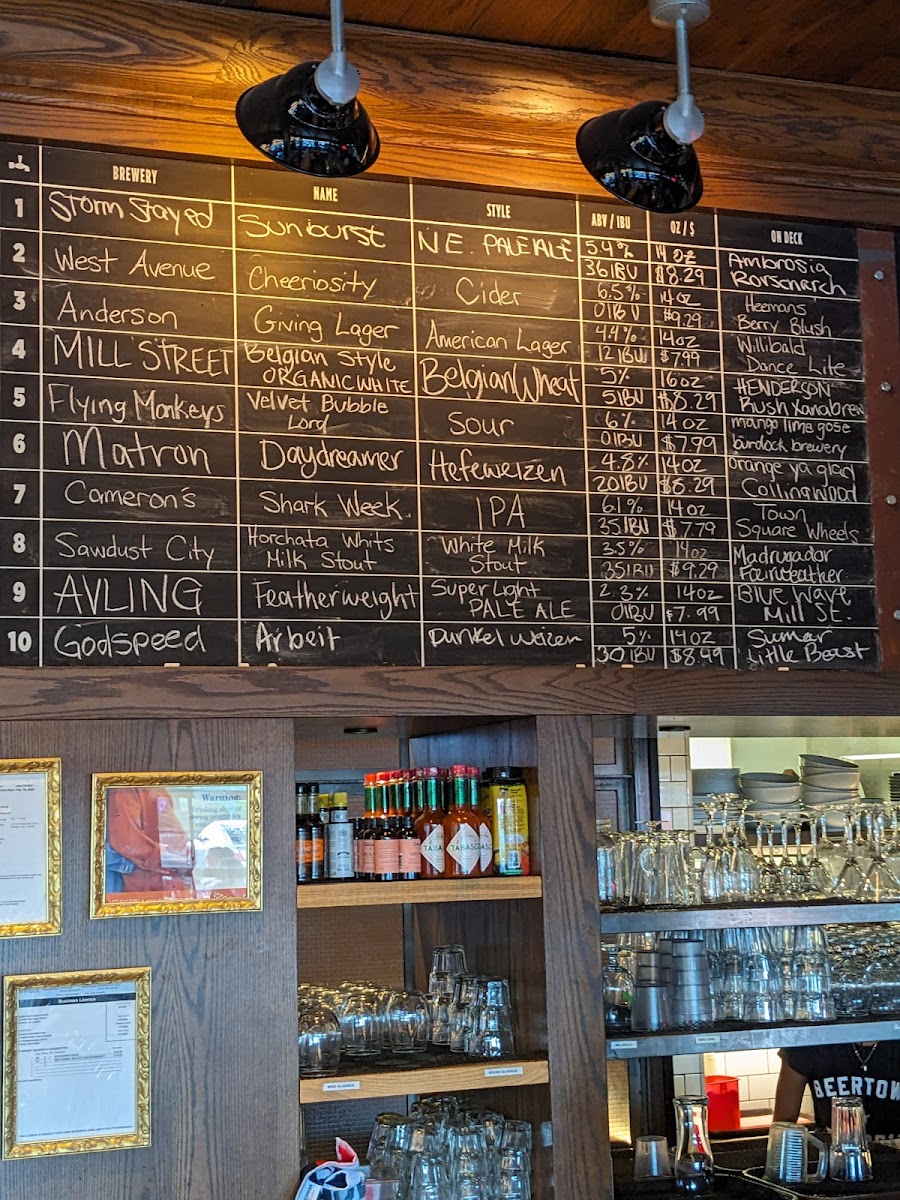 BREWERY NAME STYLE ABV / IBU OZ / $ ON DECK
1 Storm Stayed Sunburst N.E. PALE ALE 5.4% 14 oz Ambrosia
36 IBU $8.29 Rorscharch
2 West Avenue Cheeriosity Cider 6.5% 14oz Heemans
0 IBU $9.29 Berry Blush
3 Anderson Giving Lager American Lager 4.4% 14oz Willibald
12 IBU $7.99 Dance Lite
4 MILL STREET Belgian Style Belgian Wheat 5% 16oz HENDERSON
ORGANIC WHITE 5IBU $8.29 Rush Xanabrew
5 Flying Monkeys Velvet Bubble Sour 6% 14 oz mango lime gose
Lord 0IBU $7.99 burdock brewery
6 Matron Daydreamer Hefeweizen 4.8% 14oz orange ya glad
20IBU $8.29 Collingwood
7 Cameron's Shark Week IPA 6.1% 14oz Town
35IBU $7.79 Square Wheels
8 Sawdust City Horchata Whits White Milk 3.5% 14oz Madrugador
Milk Stout Stout 35IBU $9.29 Fairweather
9 AVLING Featherweight Super Light 2.3% 14oz Blue Wave
PALE ALE 0IBU $7.99 Mill St.
10 Godspeed Arbeit Dunkel weizen 5% 14oz Sumar
30 IBU $8.49 Little Beast
Warning:
TABASCO
Business Licence
WINE GLASSES
ROCKS GLASSES
BEERTOWN